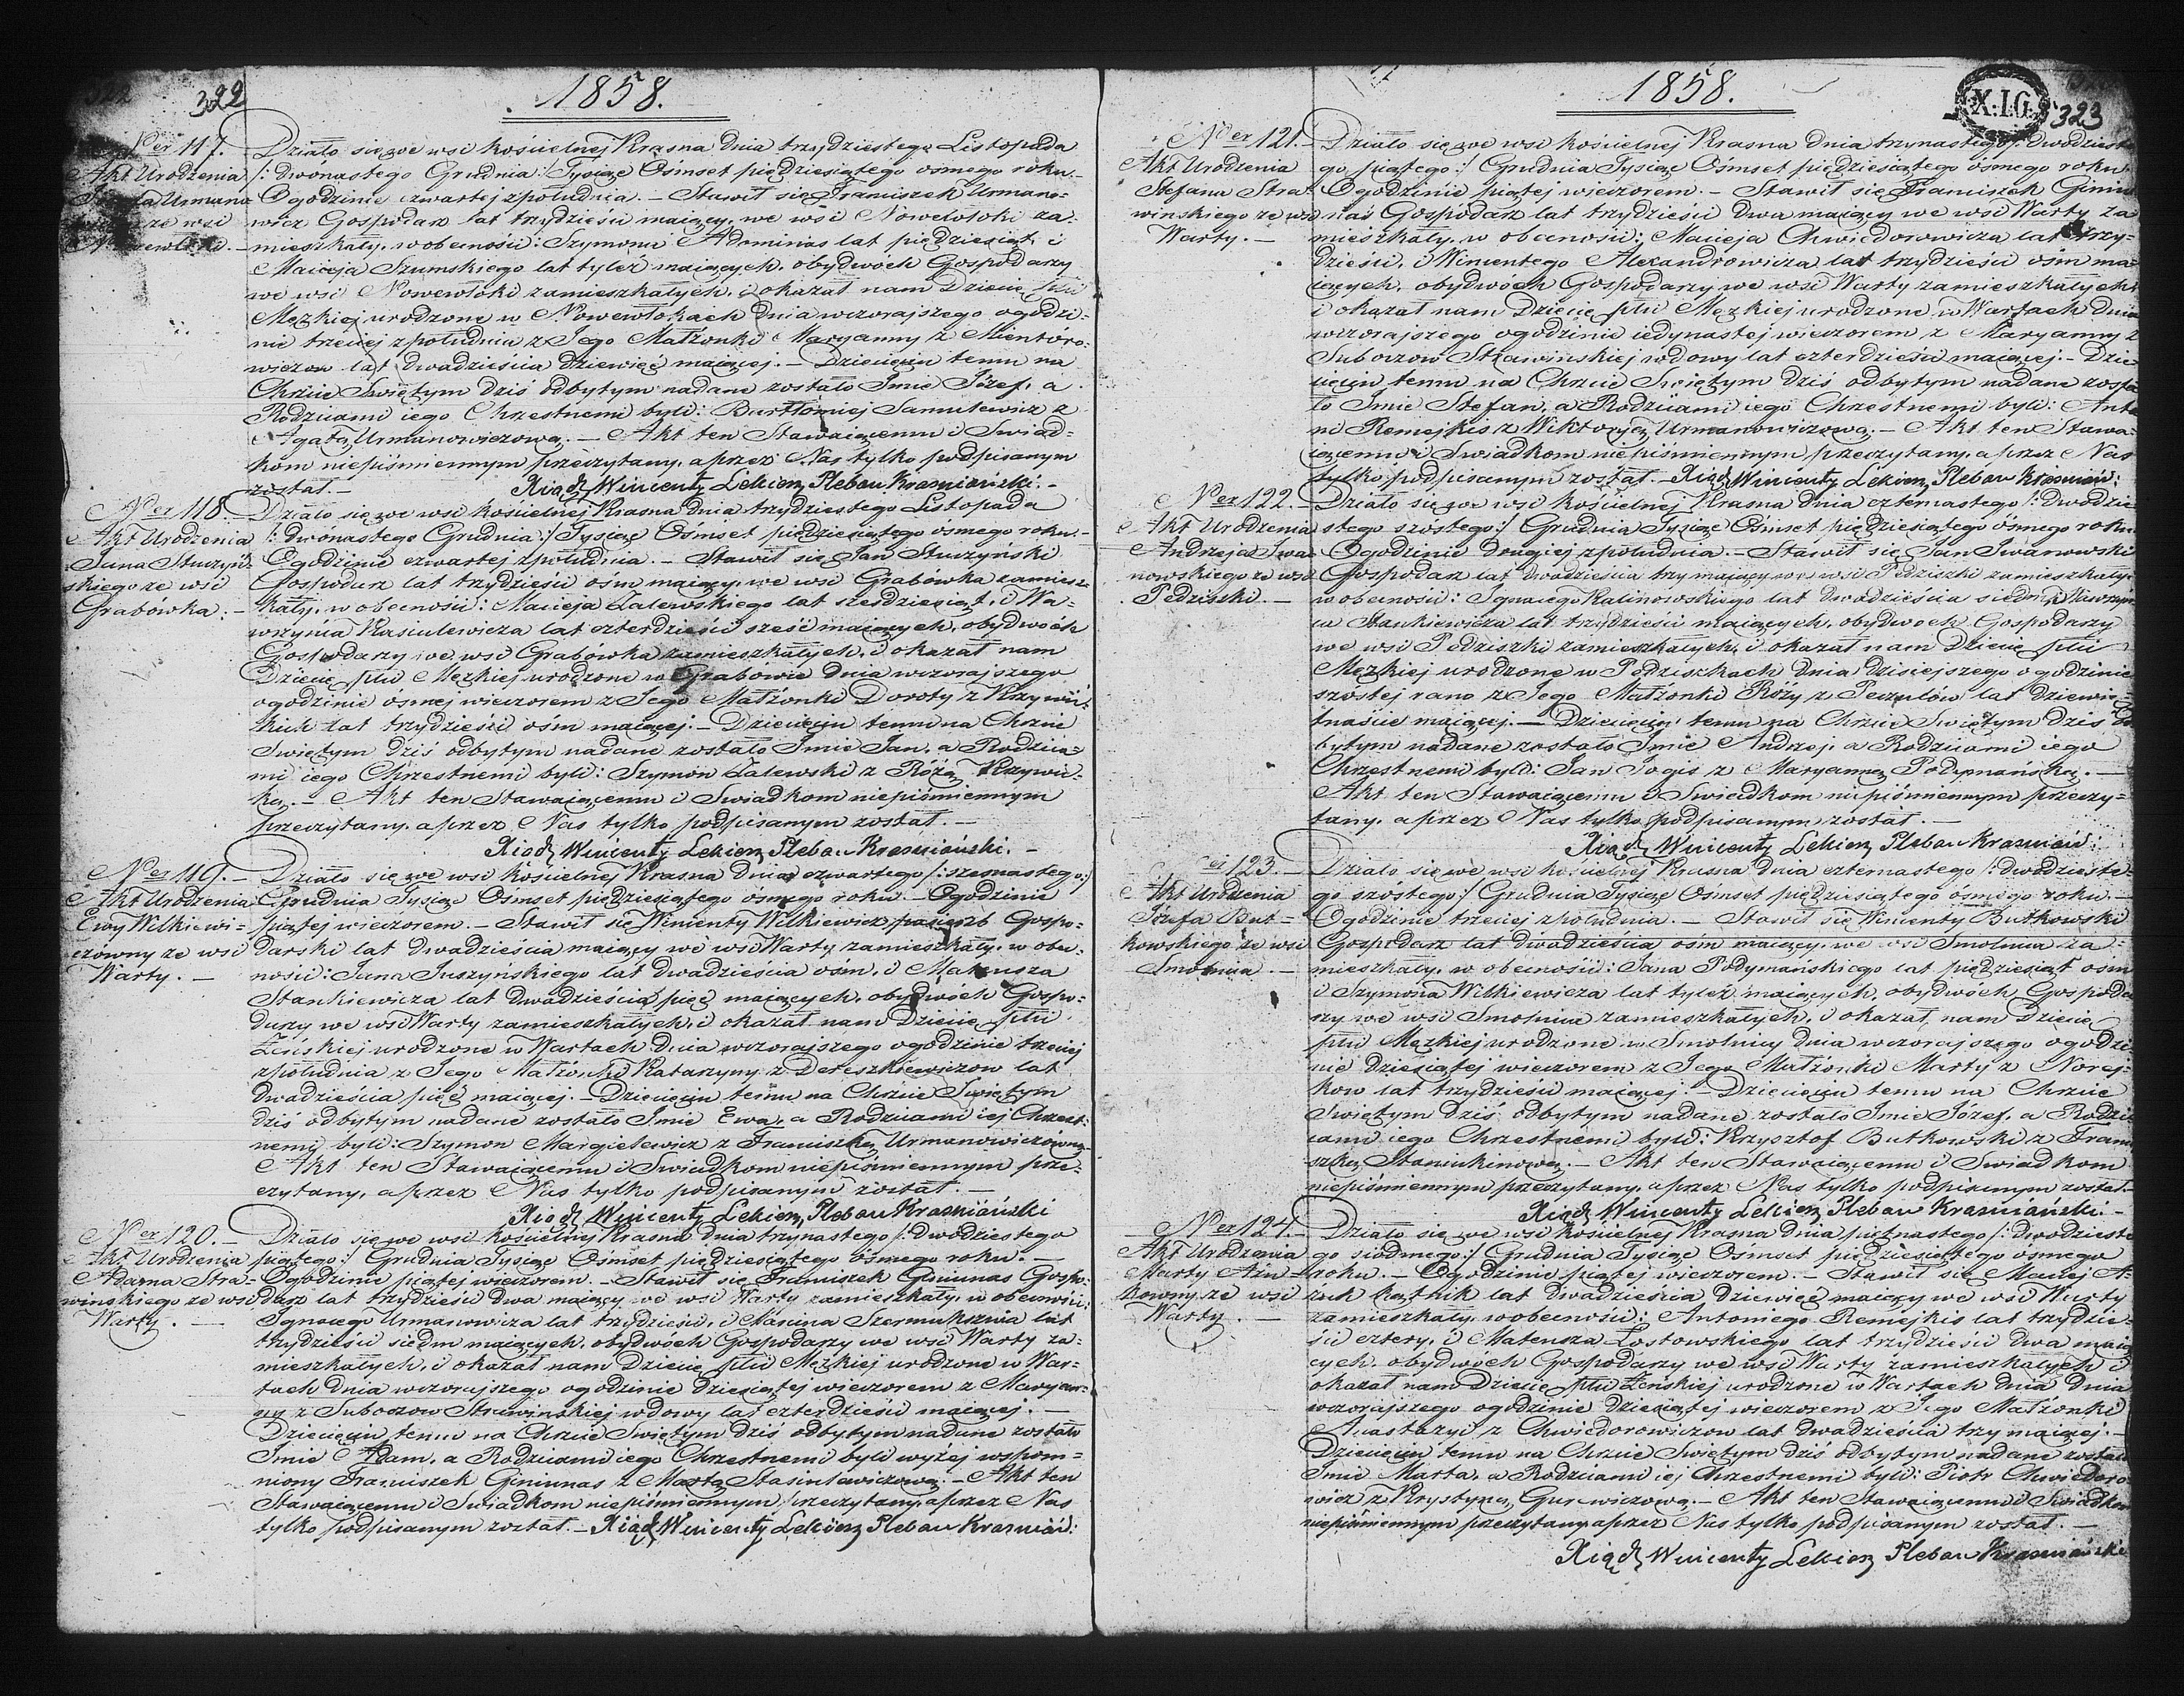 322
1858.
Ner 117.
Akt Urodzenia
Urmano
ze wsi
Działo się we wsi kościelnej Krasna dnia trzydziestego Listopada
/: dwonastego Grudnia :/ Tysiąc Ośmset pięćdziesiątego ósmego roku.-
Ogodzinie czwartej zpołudnia. - Stawił się Franciszek Urmano-
wicz Gospodarz lat trzydzieści maiący, we wsi Nowewłoki za-
mieszkały, w obecności: Szymona Adominas lat pięćdziesiąt, i
Macieja Szumskiego lat tyleż maiących, obydwóch Gospodarzy
we wsi Nowewłoki zamieszkałych, i okazał nam Dziecie płci
Męzkiej urodzone w Nowewłokach dnia wczorajszego ogodzi-
nie trzeciej zpołudnia z Jego Małżonki Maryanny z Mientóro-
wiczow lat dwadzieścia dziewięć maiącej. - Dziecięciu temu na
Chrzcie Świętym dziś odbytym nadane zostało Imie Józef, a
Rodzicami iego Chrzestnemi byli: Bartłomiej Samulewicz z
Agatą Urmanowiczową. - Akt ten Stawaiącemu i Swiad-
kom niepiśmiennym przeczytany, a przez Nas tylko podpisanym
został. - Xiądz Wincenty Lekiery Pleban Krasniański. -
Ner 118. -
Akt Urodzenia
Jana Stuczyń-
skiego ze wsi
Grabówka. -
Działo się we wsi kościelnej Krasna dnia trzydziestego Listopada
/: dwónastego Grudnia :/ Tysiąc Ośmset pięćdziesiątego ósmego roku. -
Ogodzinie czwartej zpołudnia. - Stawił się Jan Stuczyński
Gospodarz lat trzydzieści ośm maiący, we wsi Grabówka zamiesz-
kały, w obecności: Macieja Zalewskiego lat sześdziesiąt, i Wa-
wrzyńca Kasiulewicza lat czterdzieści sześć maiących, obydwóch
Gospodarzy we wsi Grabówka zamieszkałych, i okazał nam
Dziecie płci Męzkiej urodzone w Grabówce dnia wczorajszego
ogodzinie ósmej wieczorem z Jego Małżonki Doroty z Krzywic-
kich lat trzydzieści ośm maiącej. - Dziecięciu temu na Chrzcie
Swiętym dziś odbytym nadane zostało Imie Jan, a Rodzica-
mi iego Chrzestnemi byli: Szymon Zalewski z Różą Krzywic-
ką. - Akt ten Stawaiącemu i Swiadkom niepiśmiennym
przeczytany, a przez Nas tylko podpisanym został. -
Xiądz Wincenty Lekiery Pleban Krasniański. -
Ner 119. -
Akt Urodzenia
Ewy Wilkiewi-
czówny ze wsi
Warty. -
Działo się we wsi kościelnej Krasna dnia czwartego /: szesnastego :/
Grudnia Tysiąc Ośmset pięćdziesiątego ósmego roku. - Ogodzinie
piątej wieczorem. - Stawił się Wincenty Wilkiewicz parobk Gospo-
darski lat dwadzieścia maiący we wsi Warty zamieszkały, w obec-
ności: Jana Juszyńskiego lat dwadzieścia ośm, i Mateusza
Stankiewicza lat dwadzieścia pięć maiących, obydwóch Gospo-
darzy we wsi Warty zamieszkałych, i okazał nam Dziecie płci
Żeńskiej urodzone w Wartach dnia wczorajszego ogodzinie trzeciej
zpołudnia z Jego Małżonki Katarzyny z Dereszkiewiczow lat
dwadzieścia pięć maiącej. - Dziecięciu temu na Chrzcie Swiętym
dziś odbytym nadane zostało Imie Ewa, a Rodzicami iej Chrzest-
nemi byli: Szymon Margielewicz z Franciszką Urmanowiczowną. -
Akt ten Stawaiącemu i Swiadkom niepiśmiennym prze-
czytany, a przez Nas tylko podpisanym został. -
Xiądz Wincenty Lekiery Pleban Krasniański
Ner 120. -
Akt Urodzenia
Adama Stra-
winskiego ze wsi
Warty. -
Działo się we wsi kościelnej Krasna dnia trzynastego /: dwódziestego
piątego :/ Grudnia Tysiąc Ośmset pięćdziesiątego ósmego roku. -
Ogodzinie piątej wieczorem. - Stawił się Franciszek Giniunas Gospo-
darz lat trzydzieści dwa maiący we wsi Warty zamieszkały, w obecności:
Ignacego Urmanowicza lat trzydzieści, i Marcina Szermuksznia lat
trzydzieści siedm maiących, obydwóch Gospodarzy we wsi Warty za-
mieszkałych, i okazał nam Dziecie płci Męzkiej urodzone w War-
tach dnia wczorajszego ogodzinie dziesiątej wieczorem z Maryan-
ny z Suboczow Strawinskiej wdowy lat czterdzieści maiącej. -
Dziecięciu temu na Chrzcie Swiętym dziś odbytym nadane zostało
Imie Adam, a Rodzicami iego Chrzestnemi byli wyżej wspom-
niony Franciszek Giniunas z Martą Stasiulewiczową. - Akt ten
Stawaiącemu i Swiadkom niepiśmiennym przeczytany, a przez Nas
tylko podpisanym został. - Xiądz Wincenty Lekiery Pleban Krasniań:
1858.
X.I.G.
323
Ner 121. -
Akt Urodzenia
Stefana Stra-
winskiego ze wsi
Warty. -
Działo się we wsi kościelnej Krasna dnia trzynastego /: dwodzieste
go piątego :/ Grudnia Tysiąc Ośmset pięćdziesiątego ósmego roku.
Ogodzinie piątej wieczorem. - Stawił się Franciszek Giniu
nas Gospodarz lat trzydzieści dwa maiący we wsi Warty za
mieszkały, w obecności: Macieja Chwiedorowicza lat trzy-
dzieści, i Wincentego Alexandrowicza lat trzydzieści ośm ma-
iących, obydwóch Gospodarzy we wsi Warty zamieszkałych
i okazał nam Dziecie płci Męzkiej urodzone w Wartach dnia
wczorajszego ogodzinie iedynastej wieczorem z Maryanny z
Suboczow Strawińskiej wdowy lat czterdzieści maiącej. - Dzie-
cięciu temu na Chrzcie Swiętym dziś odbytym nadane zosta
ło Imie Stefan, a Rodzicami iego Chrzestnemi byli: Anto
ni Remejkis z Wiktoryą Urmanowiczową. - Akt ten Stawa-
iącemu i Swiadkom niepiśmiennym przeczytany, a przez Nas
tylko podpisanym został. - Xiądz Wincenty Lekiery Pleban Krasniań:
Ner 122. -
Akt Urodzenia
Andrzeja Iwa-
nowskiego ze wsi
Pedziszki. -
Działo się we wsi kościelnej Krasna dnia czternastego /: dwódzie
stego szóstego :/ Grudnia Tysiąc Ośmset pięćdziesiątego ósmego roku
Ogodzinie drugiej zpołudnia. - Stawił się Jan Iwanowski
Gospodarz lat dwadzieścia trzy maiący we wsi Pedziszki zamieszkały,
w obecności: Ignacego Kalinowskiego lat dwadzieścia siedm, i Wawrzyń
ca Stankiewicza lat trzydzieści maiących, obydwóch Gospodarzy
we wsi Pedziszki zamieszkałych, i okazał nam Dziecie płci
Męzkiej urodzone w Pedziszkach dnia dzisiejszego ogodzinie
szóstej rano z Jego Małżonki Róży z Peczulów lat dziewię-
tnaście maiącej. - Dziecięciu temu na Chrzcie Swiętym dziś od
bytym nadane zostało Imie Andrzej, a Rodzicami iego
Chrzestnemi byli: Jan Jogis z Maryanną Podymańską. -
Akt ten Stawaiącemu i Swiadkom niepiśmiennym przeczy-
tany, a przez Nas tylko podpisanym został. -
Xiądz Wincenty Lekiery Pleban Krasniań:
Ner 123. -
Akt Urodzenia
Józefa But-
kowskiego ze wsi
Smolnica. -
Działo się we wsi kościelnej Krasna dnia czternastego /: dwódzieste-
go szóstego :/ Grudnia Tysiąc Ośmset pięćdziesiątego ósmego roku. -
Ogodzinie trzeciej zpołudnia. - Stawił się Wincenty Butkowski
Gospodarz lat dwadzieścia ośm maiący, we wsi Smolnica za-
mieszkały, w obecności: Jana Podymańskiego lat pięćdziesiąt ośm
i Szymona Wilkiewicza lat tyleż maiących, obydwóch Gospoda
rzy we wsi Smolnica zamieszkałych, i okazał nam Dziecie
płci Męzkiej urodzone w Smolnicy dnia wczorajszego ogodzi-
nie dziesiątej wieczorem z Jego Małżonki Marty z Norej-
kow lat trzydzieści maiącej. - Dziecięciu temu na Chrzcie
Swiętym dziś odbytym nadane zostało Imie Józef, a Rodzi
cami iego Chrzestnemi byli: Krzysztof Butkowski z Franci
szką Staniukinową. - Akt ten Stawaiącemu i Swiadkom
niepiśmiennym przeczytany, a przez Nas tylko podpisanym został. -
Xiądz Wincenty Lekiery Pleban Krasniański. -
Ner 124. -
Akt Urodzenia
Marty Ażu-
kowny ze wsi
Warty. -
Działo się we wsi kościelnej Krasna dnia piętnastego /: dwodzieste
go siódmego :/ Grudnia Tysiąc Ośmset pięćdziesiątego ósmego
roku. - Ogodzinie piątej wieczorem. - Stawił się Maciej A-
żuk kątnik lat dwadzieścia dziewięć maiący we wsi Warty
zamieszkały, w obecności: Antoniego Remejkis lat trzydzie-
ści cztery, i Mateusza Łostowskiego lat trzydzieści dwa maią
cych, obydwóch Gospodarzy we wsi Warty zamieszkałych i
okazał nam Dziecie płci Żeńskiej urodzone w Wartach dnia dnia
wczorajszego ogodzinie dziesiątej wieczorem z Jego Małżonki
Anastazyi z Chwiedorowiczow lat dwadzieścia trzy maiącej. -
Dziecięciu temu na Chrzcie Swiętym dziś odbytym nadane zostało
Imie Marta, a Rodzicami iej Chrzestnemi byli: Piotr Chwiedoro-
wicz z Krystyną Gurewiczową. - Akt ten Stawaiącemu i Swiadkom
niepiśmiennym przeczytany a przez Nas tylko podpisanym został. -
Xiądz Wincenty Lekiery Pleban Krasniański